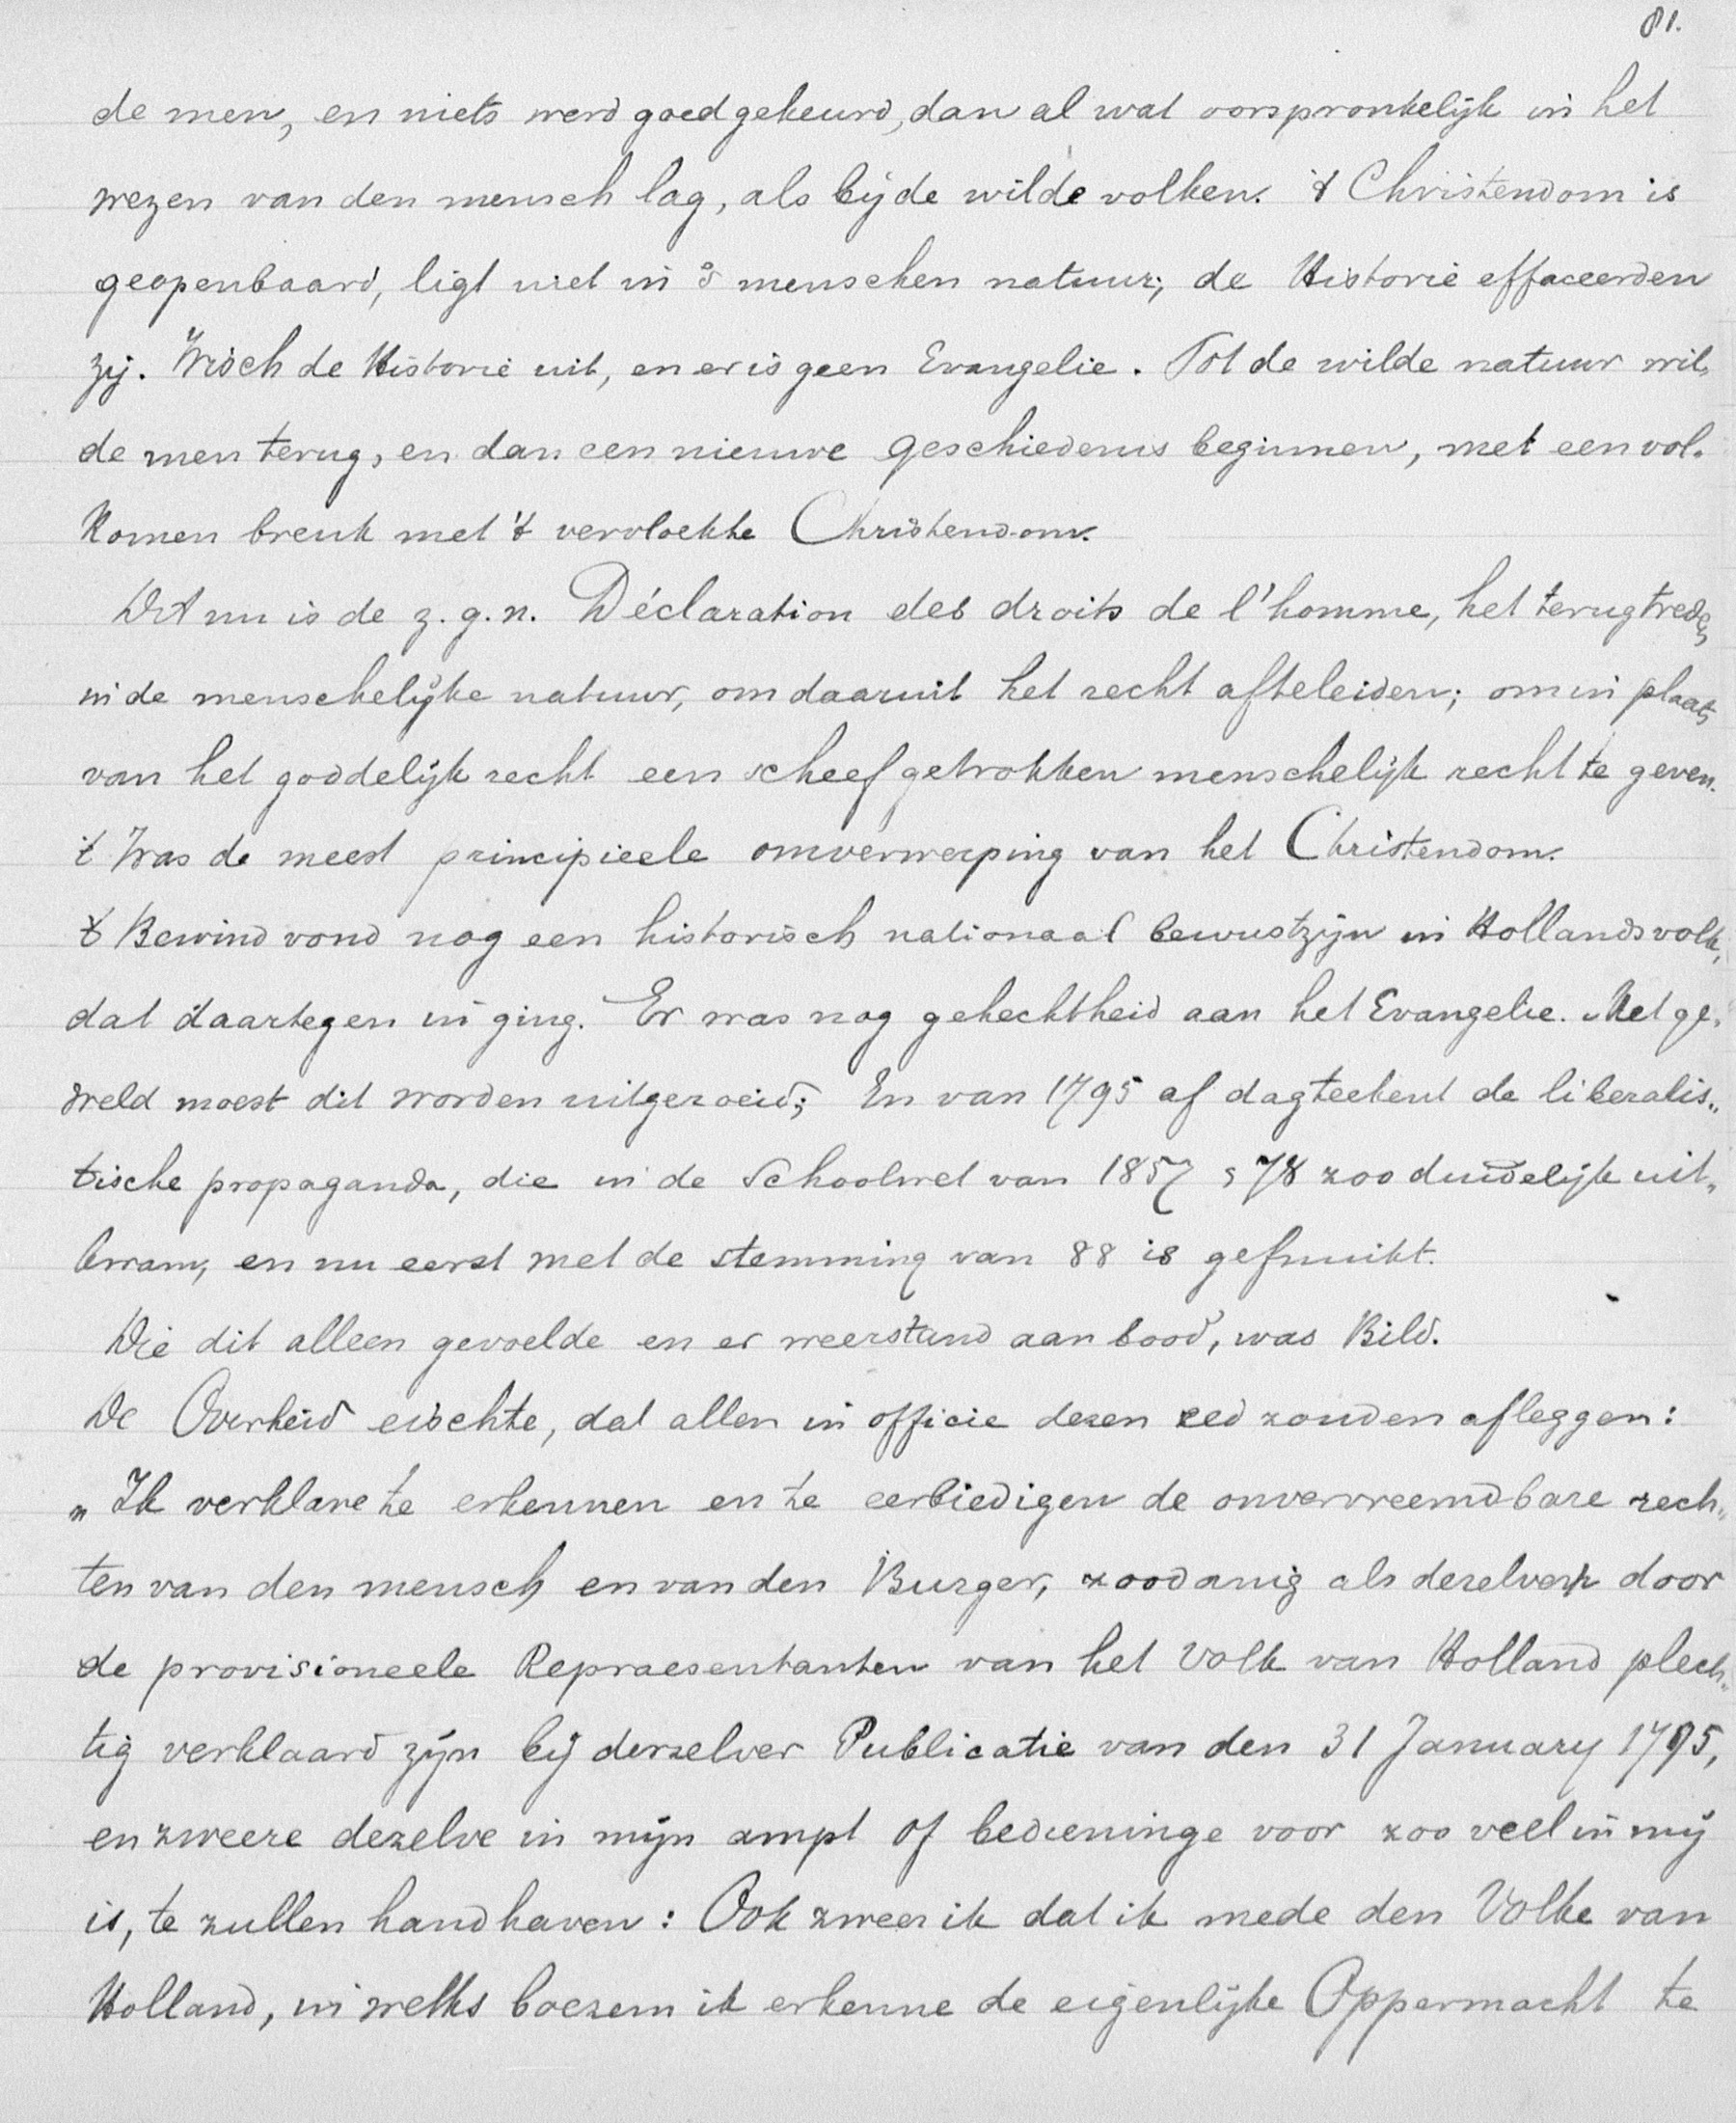 81.
de men, en niets werd goedgekeurd, dan al wat oorspronkelijk in het
wezen van den mensch lag, als bij de wilde volken. 't Christendom is
geopenbaard, ligt niet in 's menschen natuur; de Historie effaceerden
zij. Wisch de Historie uit, en er is geen Evangelie. Tot de wilde natuur wil„
de men terug, en dan een nieuwe geschiedenis beginnen, met een vol„
komen breuk met 't vervloekte Christendom.
Dit nu is de z.g.n. Déclaration des droits de l'homme, het terugtreden
in de menschelijke natuur, om daaruit het recht afteleiden; om in plaats
van het goddelijk recht een scheef getrokken menschelijk recht te geven.
't Was de meest principieele omverwerping van het Christendom.
't Bewind vond nog een historisch nationaal bewustzijn in Hollands volk,
dat daartegen in ging. Er was nog gehechtheid aan het Evangelie. Met ge„
weld moest dit worden uitgeroeid; En van 1795 af dagteekent de liberalis„
tische propaganda, die in de Schoolwet van 1857 & 78 zoo duidelijk uit„
kwam, en nu eerst met de stemming van 88 is gefnuikt.
Die dit alleen gevoelde en er weerstand aan bood, was Bild.
De Overheid eischte, dat allen in officie dezen eed zouden afleggen:
„Ik verklare te erkennen en te eerbiedigen de onvervreemdbare rech„
ten van den mensch en van den Burger, zoodanig als dezelve door
de provisioneele Repraesentanten van het volk van Holland plech„
tig verklaard zijn bij derzelver Publicatie van den 31 January 1795,
en zweere dezelve in mijn ampt of bedieninge voor zoo veel in mij
is, te zullen handhaven: Ook zweer ik dat ik mede den Volke van
Holland, in welks boezem ik erkenne de eigenlijke Oppermacht te